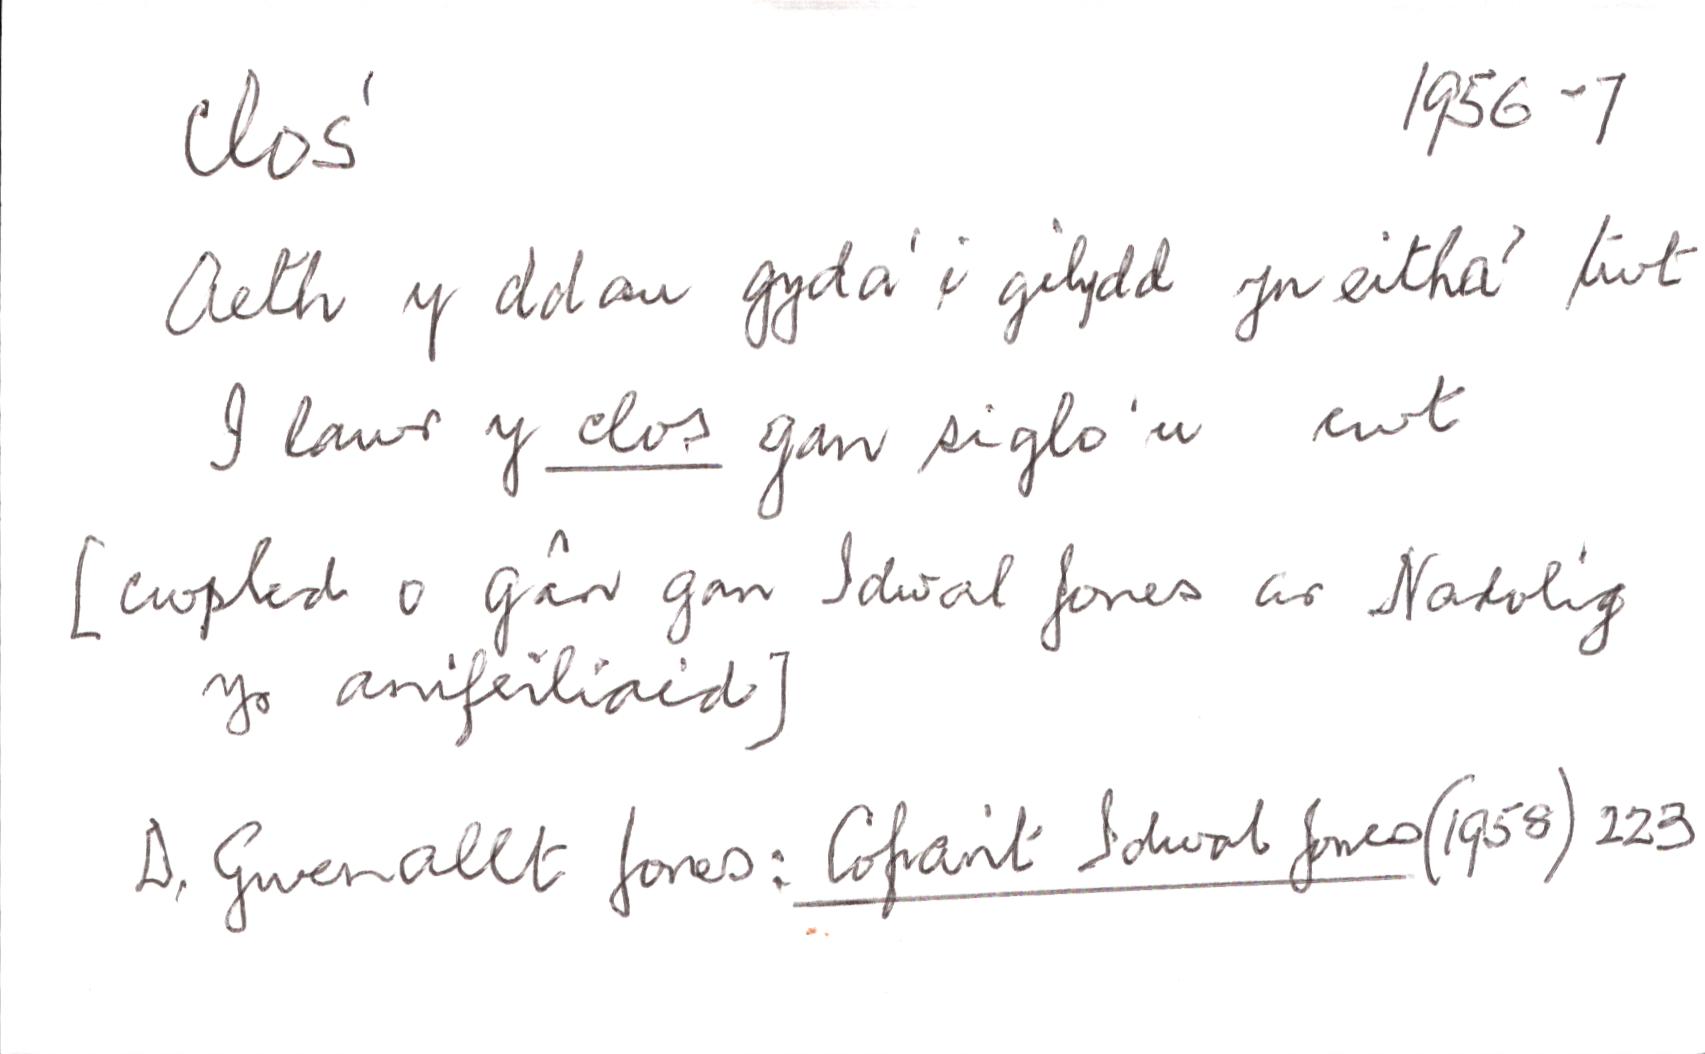 clos¹ 1956-7
Aeth y ddau gyda'i gilydd yn eitha' twt
I lawr y clos gan siglo'u cwt
[cwpled o gân gan Idwal Jones ar Nadolig
yr anifeiliaid]
D. Gwenallt Jones: Cofiant Idwal Jones (1958) 223